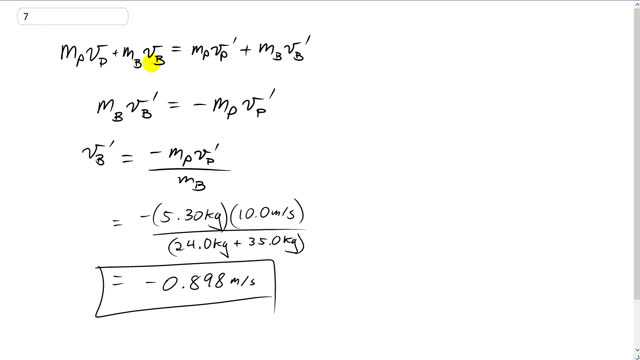 7
m_P v_P + m_B v_B = m_P v_P' + m_B v_B'
m_B v_B' = - m_P v_P'
v_B' = - m_P v_P' / m_B
= -(5.30 kg)(10.0 m/s) / (24.0 kg + 35.0 kg)
= -0.898 m/s